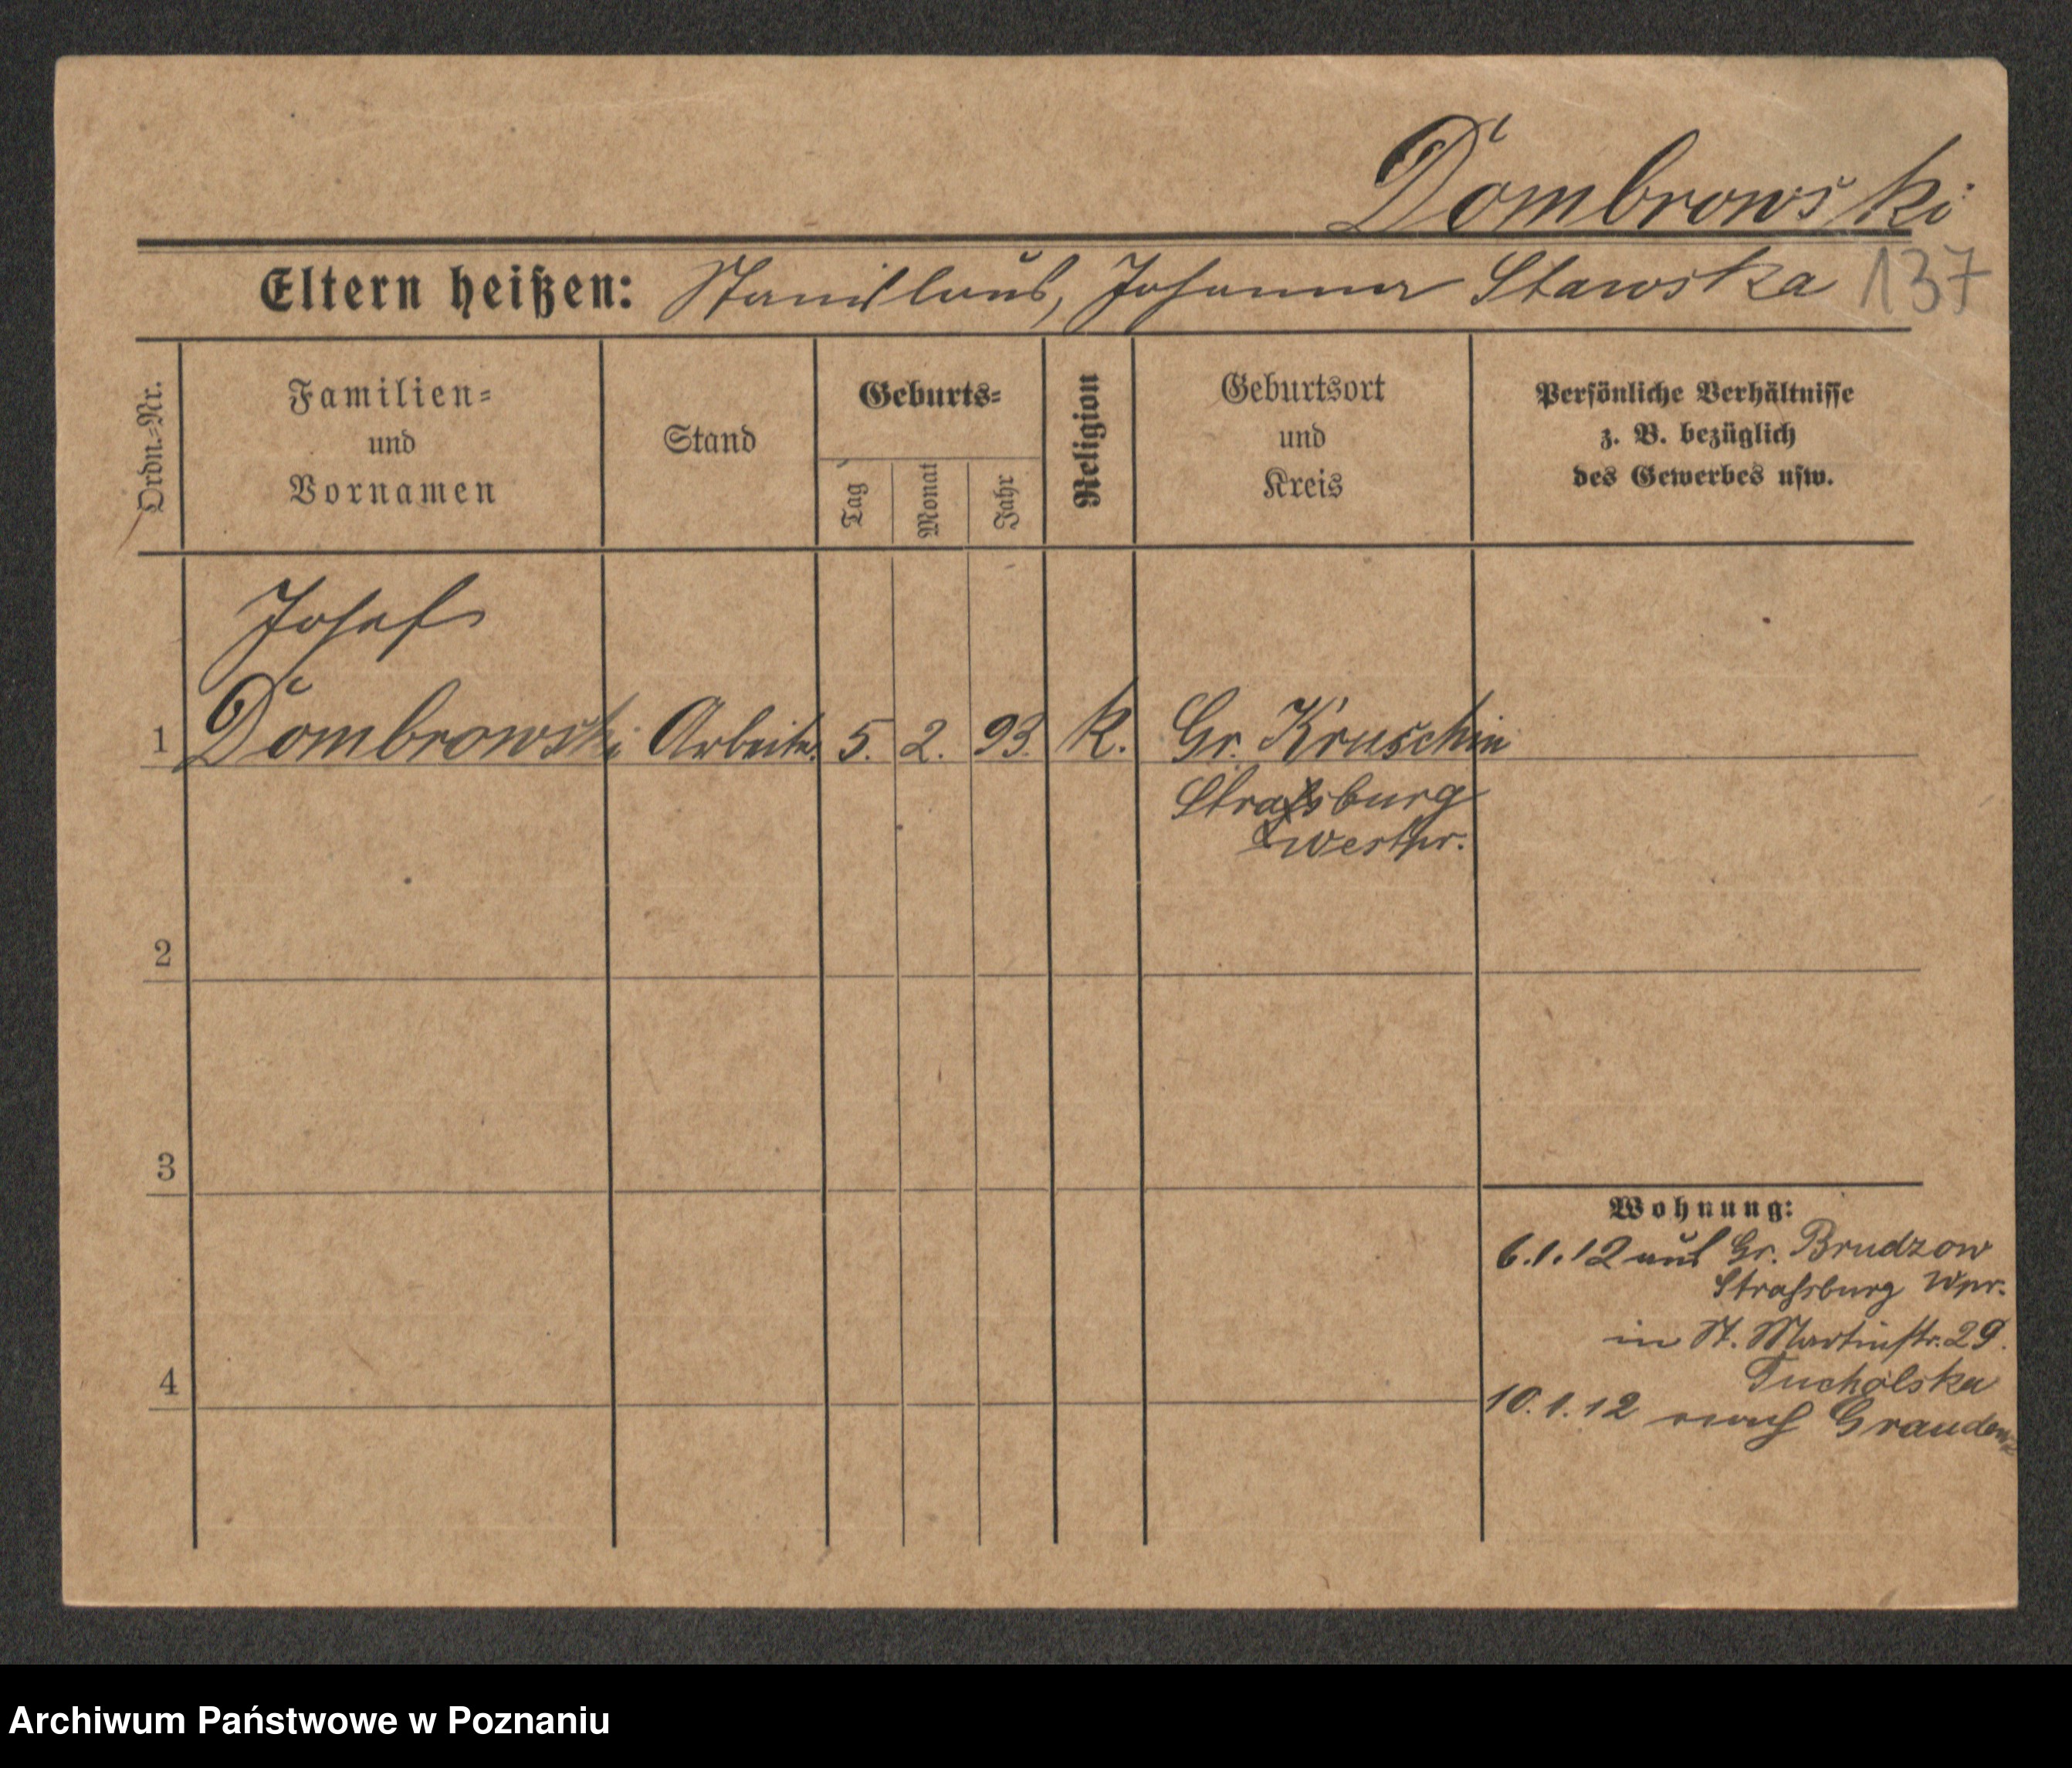 Dombrowski
Eltern heißen: Stanislaus, Johanna Stawska 137
Ordn.=Nr.
Familien=
und
Vornamen
Stand
Geburts=
Tag
Monat
Jahr
Religion
Geburtsort
und
Kreis
Persönliche Verhältnisse
z. B. bezüglich
des Gewerbes usw.
Josef
1 Dombrowski Arbeiter 5. 2. 93. k. Gr. Kruschin
Strassburg
Westpr.
2
3
Wohnung:
6.1.12 aus Gr. Brudzow
Strassburg Wpr.
in St. Martinstr. 29.
Tucholska
4
10.1.12 nach Graudenz
Archiwum Państwowe w Poznaniu